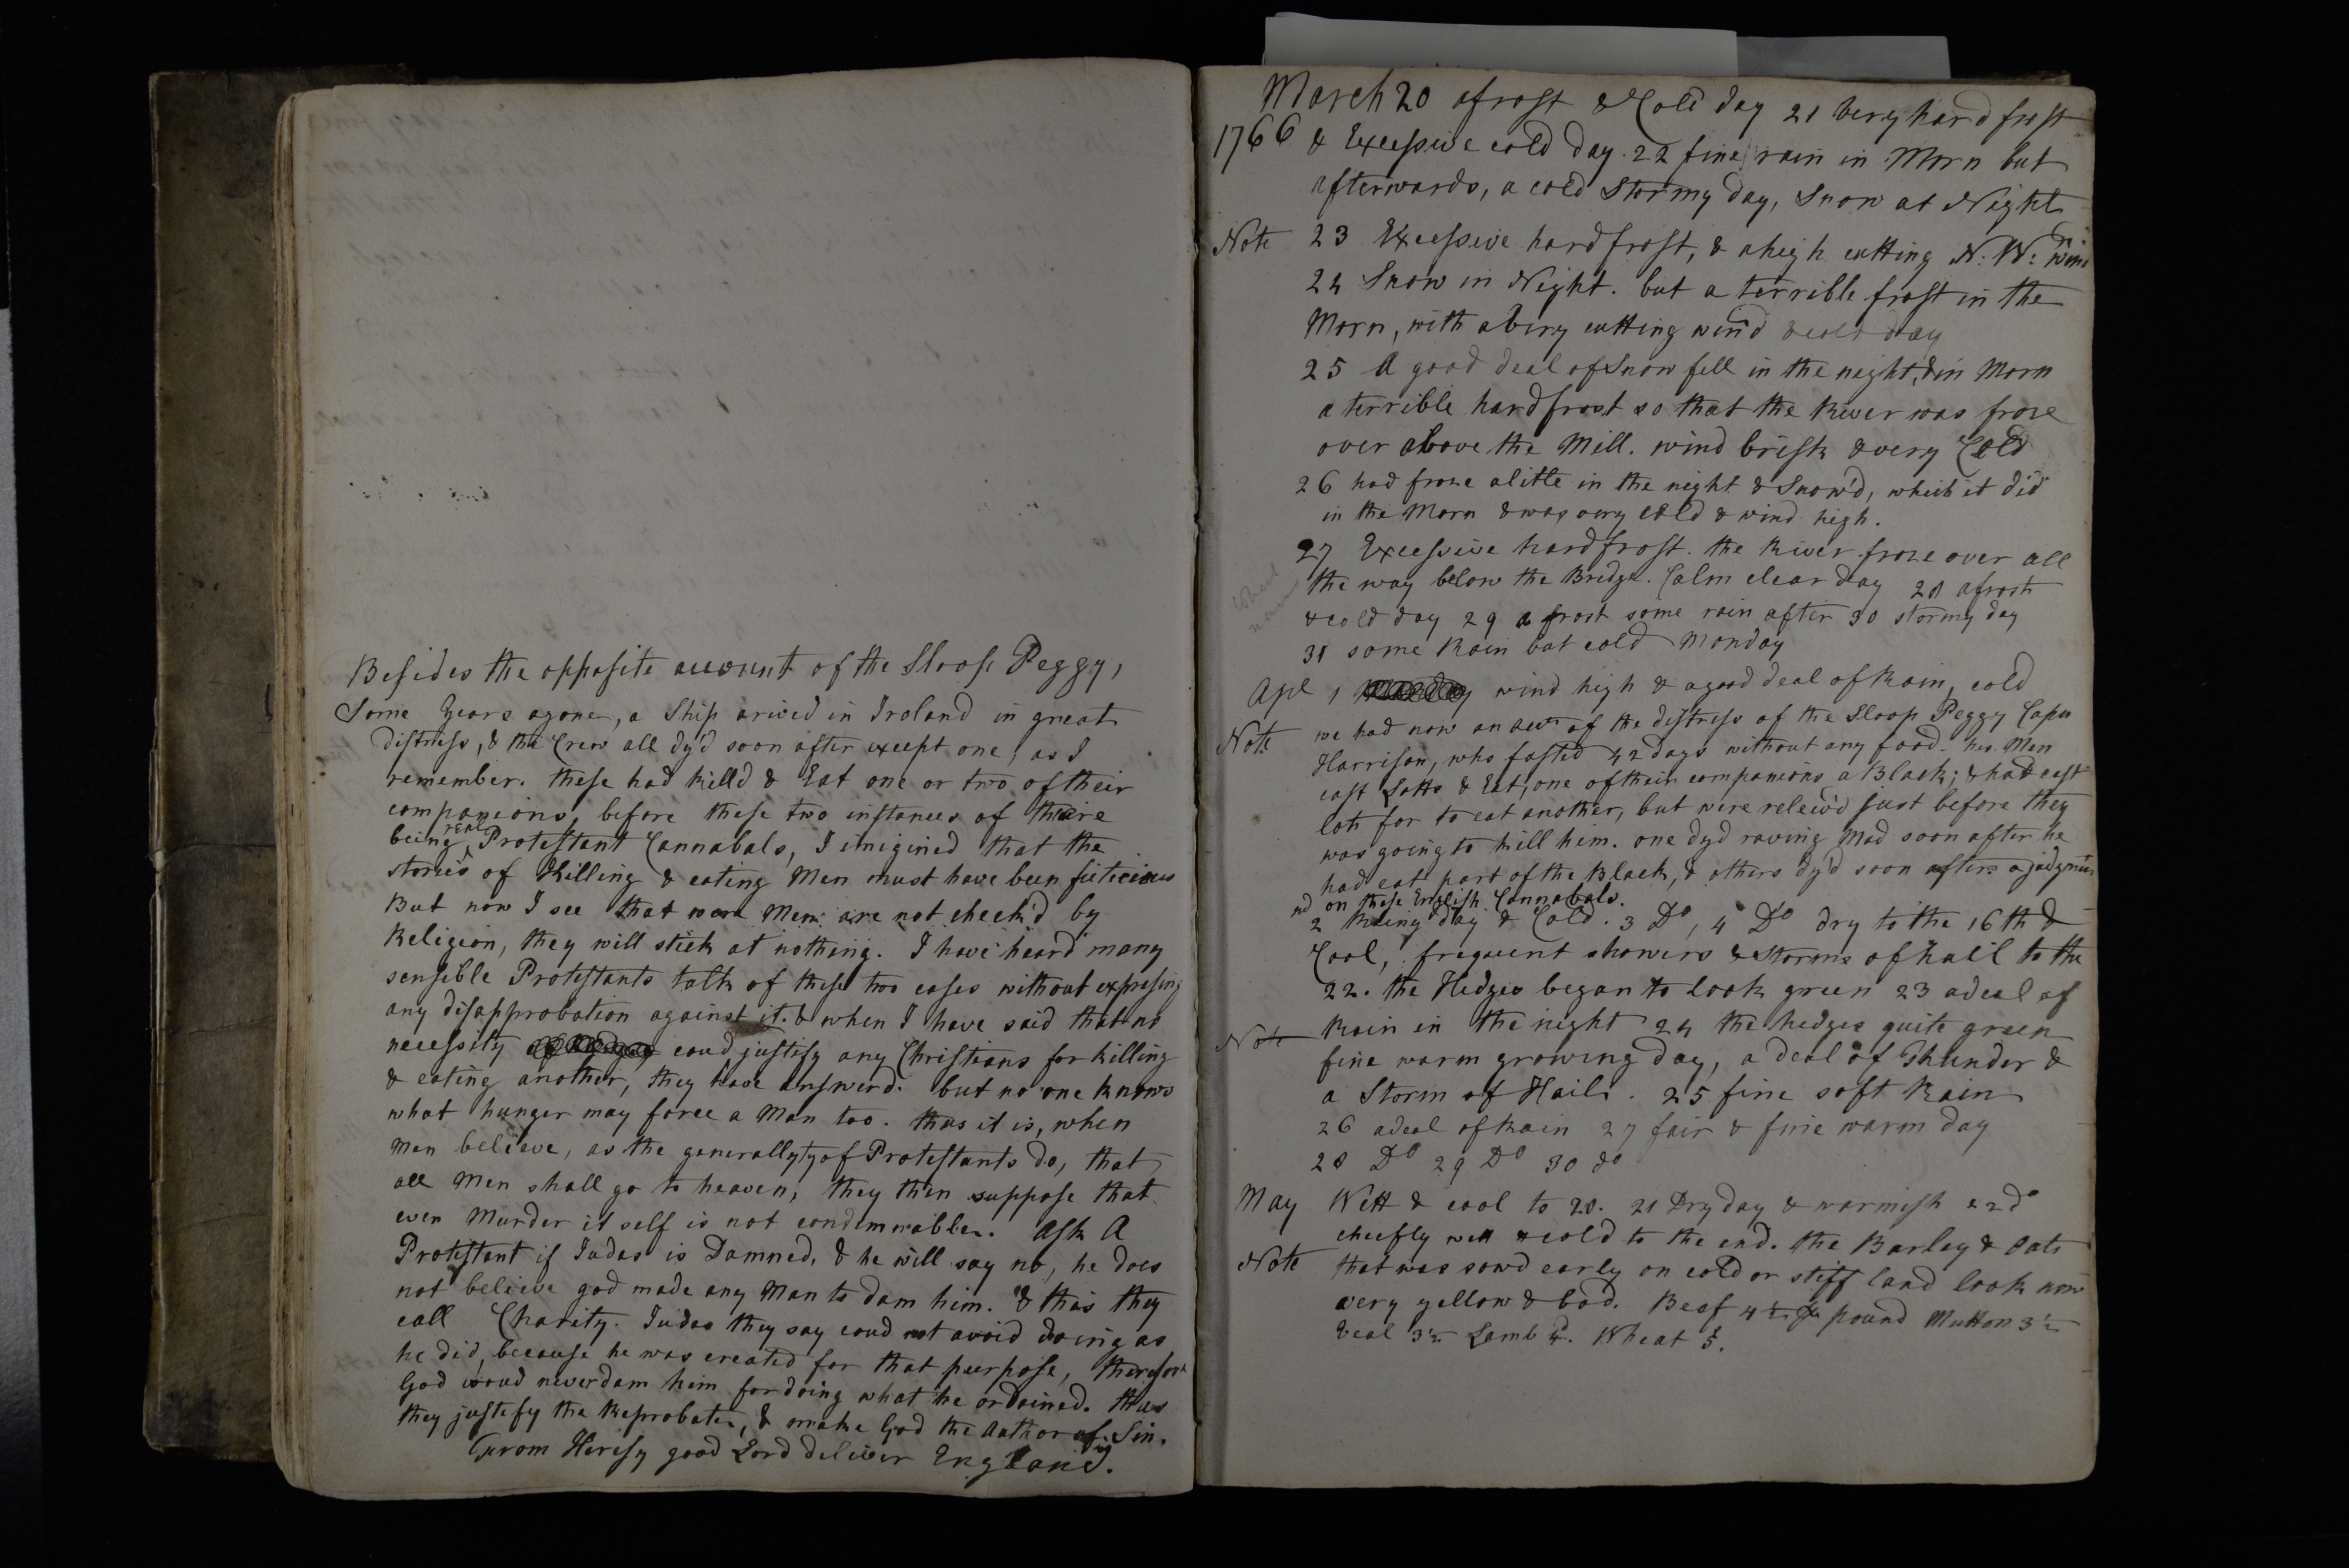 Besides the opposite account of the Sloop Peggy,
Some Years agone, a Ship arived in Ireland in great
distress, & the Crew all dy'd soon after except one, as I
remember. these had killd & Eat one or two of their
companions, before these two instances of there
being real Protestant Cannabals, I imigined that the
stories of Killing & eating Men must have been ficticious
But now I see that were Men are not check'd by
Religion, they will stick at nothing. I have heard many
sensible Protestants talk of these two cases without expressing
any disapprobation against it. & when I have said that no
necessity coud justify any Christians for killing
& eating another, they have answerd. but no one knows
what hunger may force a Man too. thus it is, when
Men believe, as the generallyty of Protestants do, that
all Men shall go to heaven, they then suppose that
even Murder it self is not condemnable. Ask A
Protestant if Judas is Damned, & he will say no, he does
not believe god made any Man to dam him. & this they
call Charity. Judas they say coud not avoid doing as
he did, because he was created for that purpose, therefore
God woud never dam him for doing what he ordained. thus
they justefy the Reprobates, & make God the Author of Sin.
From Heresy good Lord deliver England.
March 20 a frost & Cold day 21 very hard frost
1766 & Excessive cold day. 22 fine rain in Morn but
afterwards, a cold Stormy day, Snow at Night
Note 23 Excessive hard frost, & a high cutting N. W: wind
24 Snow in Night. but a terrible frost in the
Morn, with a very cutting wind & cold day
25 A good deal of Snow fell in the night, & in Morn
a terrible hard frost so that the River was froze
over above the Mill. wind brisk & very Cold
26 had froze a little in the night & Snow'd, which it did
in the Morn & was very cold & wind high.
27 Excessive hard frost. the River froze over all
the way below the Bridge. Calm clear day 28 a frost
& cold day 29 a frost some rain after 30 stormy day
31 some Rain but cold Monday
Apl 1 wind high & a good deal of Rain, cold
Note we had now an acct of the distress of the Sloop Peggy Capn
Harrison, who fasted 42 days without any food. his Men
cast Lotts & Eat, one of their companions a Black; & had cast
lots for to eat another, but were releiv'd just before they
was going to kill him. one dyd raving Mad soon after he
had eat part of the Black, & others dy'd soon after a judgment
on these English Cannabals.
2 & Cold. 3 Do, 4 Do dry to the 16th &
Cool, frequent showers & Storms of hail to the
22. the Hedges began to look green 23 a deal of
Note Rain in the night 24 the hedges quite green
fine warm growing day, a deal of Thunder &
a Storm of Hail. 25 fine soft Rain
26 a deal of Rain 27 fair & fine warm day
28 Do 29 Do 30 do
May Wett & cool to 20. 21 Dry day & warmish 22 do
cheefly wett & cold to the end. the Barley & Oats
Note that was sowd early on cold or stiff land look now
very yellow & bad. Beef 4½ pound Mutton 3½
Veal 3½ Lamb 4. Wheat 5.